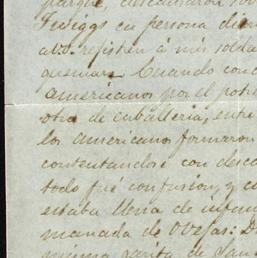 parque, descansaron so
Twiggs en persona di
registren á mis solda
queman. Cuando con
americanos por el potre
otra de caballeria, entre
los americanos formaron
contentandose con desca
todo fué confusion, y e
estaba llena de infan
manada de ovejas: D
misma garita de San